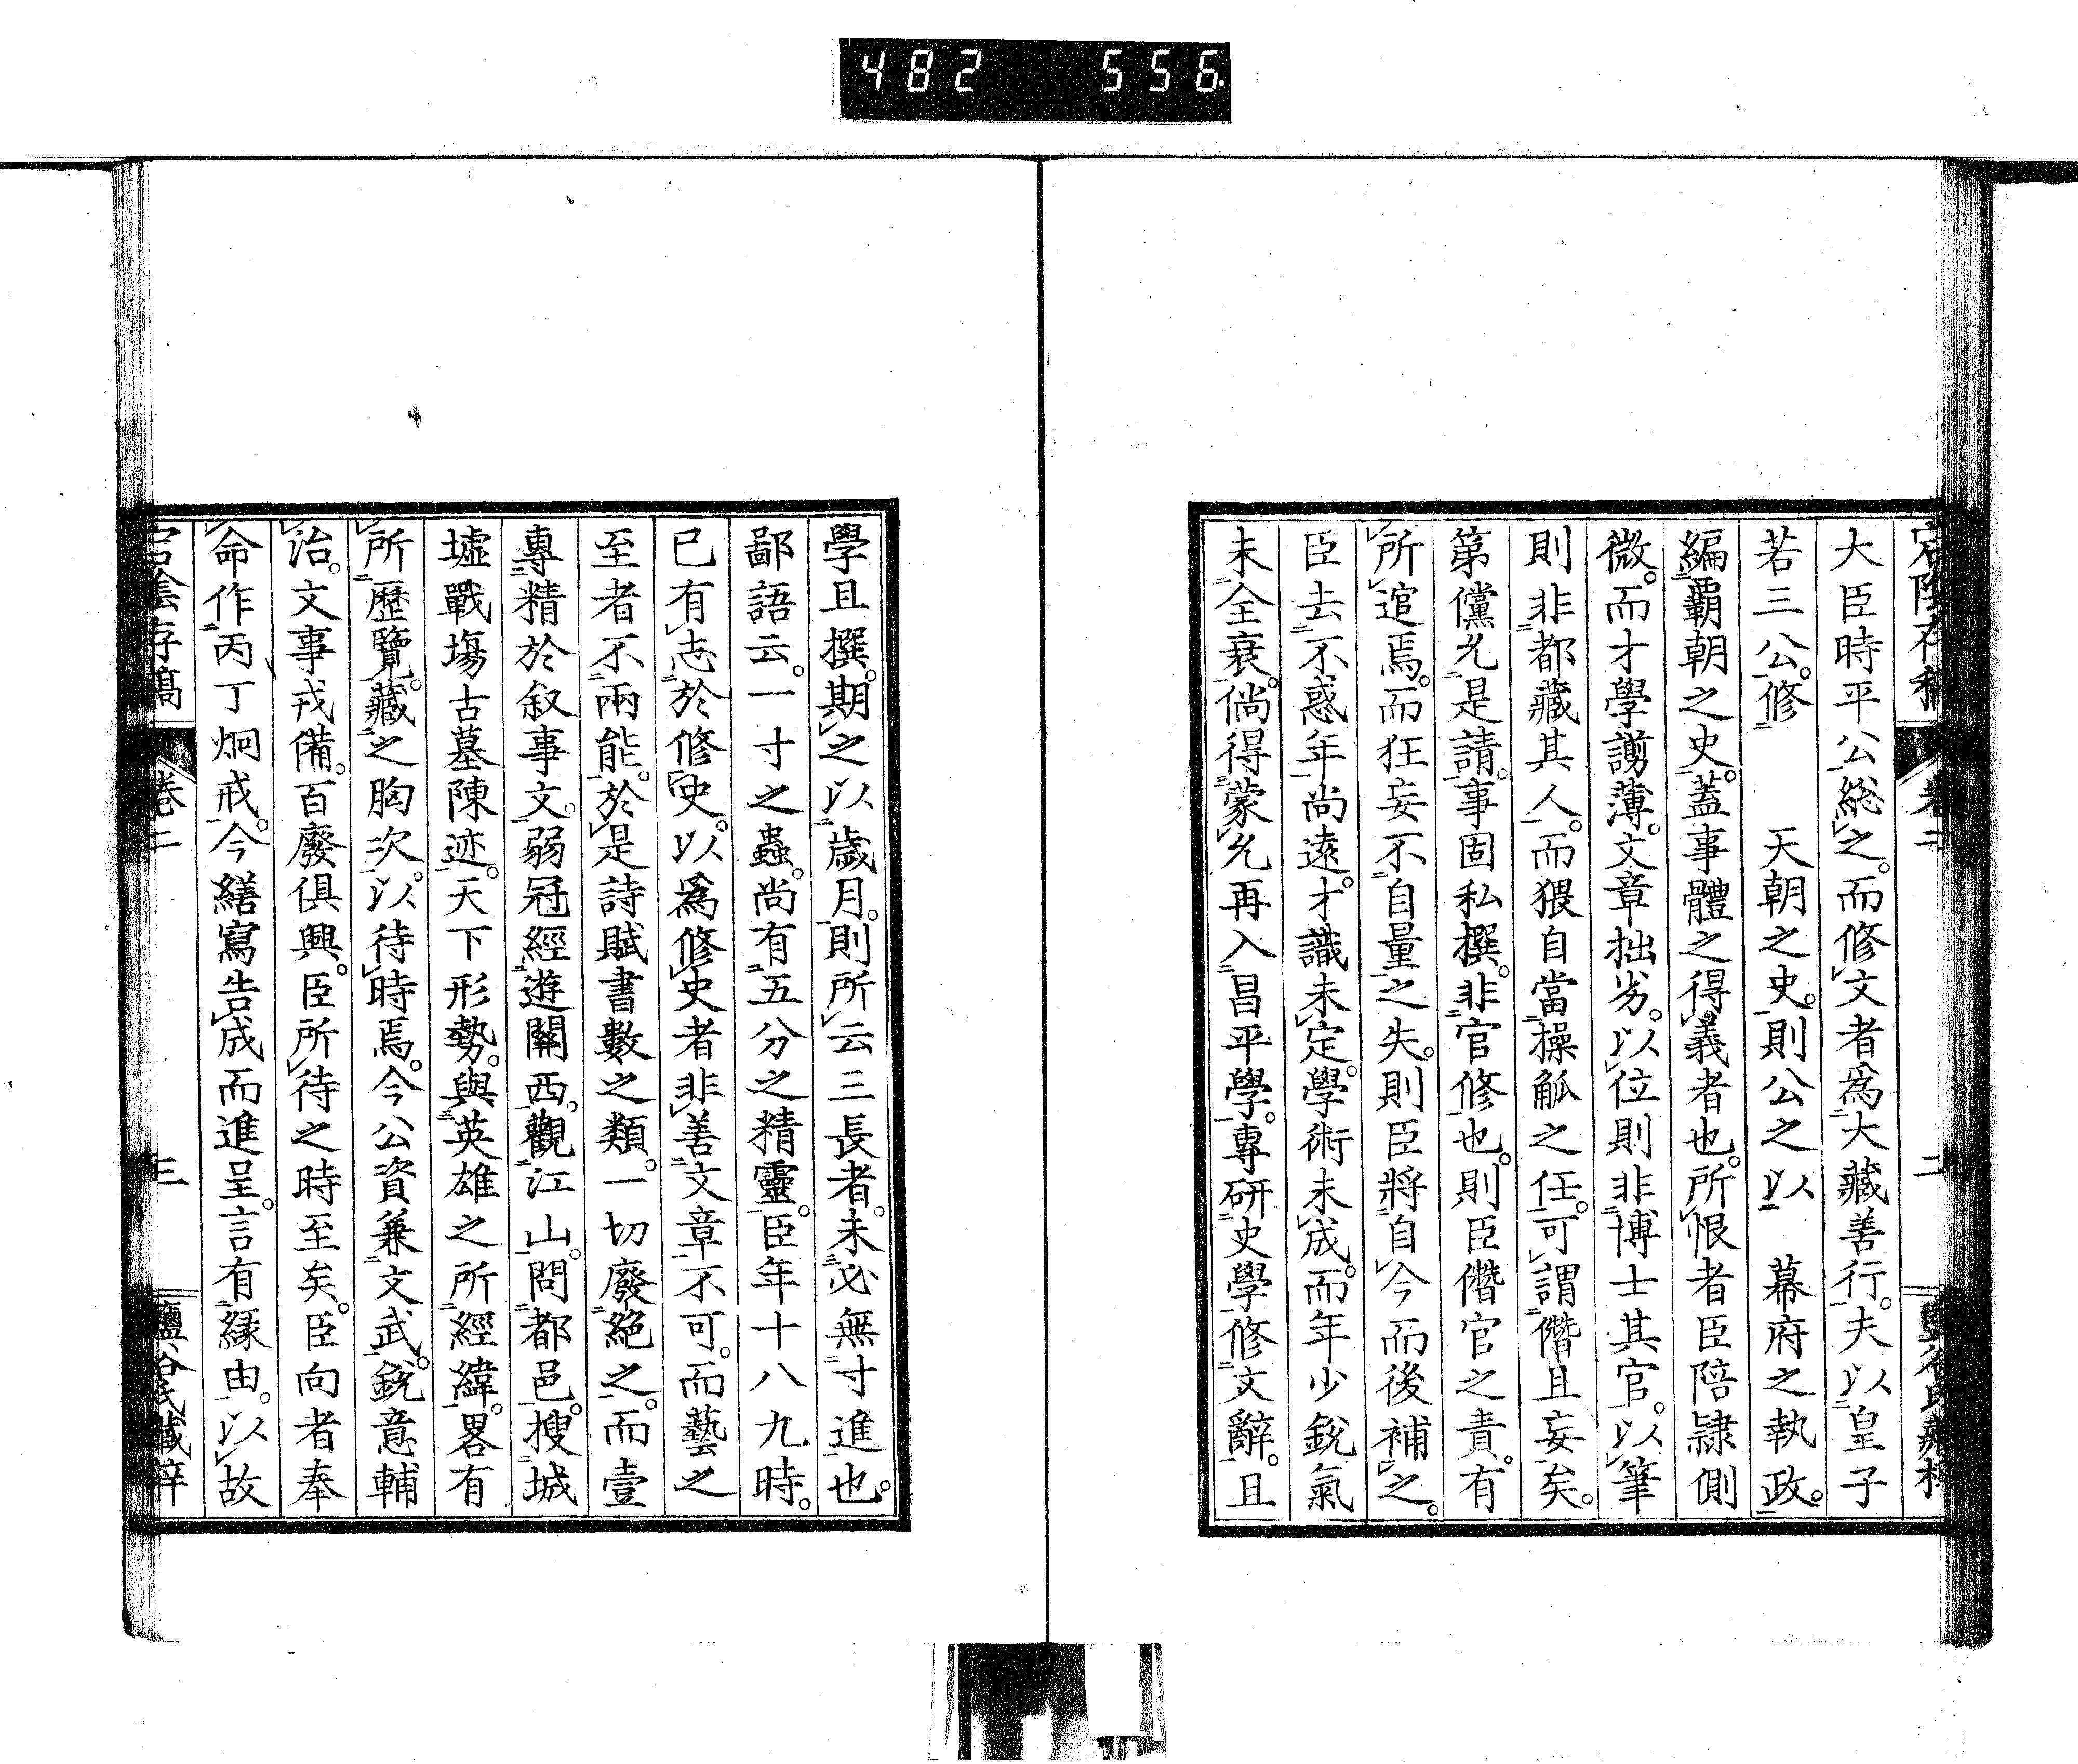 482 556
宕陰存稿 卷二 二 鹽谷氏藏梓
大臣時平公總之。而修文者爲大藏善行。夫以皇子
若三公。修 天朝之史。則公之以 幕府之執政。
編覇朝之史。蓋事體之得義者也。所恨者臣陪隷側
微。而才學謭薄。文章拙劣。以位則非博士其官。以筆
則非都藏其人。而猥自當操觚之任。可謂僭且妄矣。
第儻允是請。事固私撰。非官修也。則臣僭官之責。有
所逭焉。而狂妄不自量之失。則臣將自今而後補之。
臣去不惑年尚遠。才識未定。學術未成。而年少鋭氣
未全衰。倘得蒙允再入昌平學。專研史學修文辭。且
學且撰。期之以歲月。則所云三長者。未必無寸進也。
鄙語云。一寸之蟲。尚有五分之精靈。臣年十八九時。
已有志於修史。以爲修史者非善文章不可。而藝之
至者不兩能。於是詩賦書數之類。一切廢絕之。而壹
專精於叙事文。弱冠經遊關西。觀江山。問都邑。搜城
墟戰塲古墓陳迹。天下形勢。與英雄之所經緯。畧有
所歷覽。藏之胸次。以待時焉。今公資兼文武。鋭意輔
治。文事戎備。百廢俱興。臣所待之時至矣。臣向者奉
命作丙丁炯戒。今繕寫告成而進呈。言有緣由。以故
宕陰存稿 卷二 三 鹽谷氏藏梓